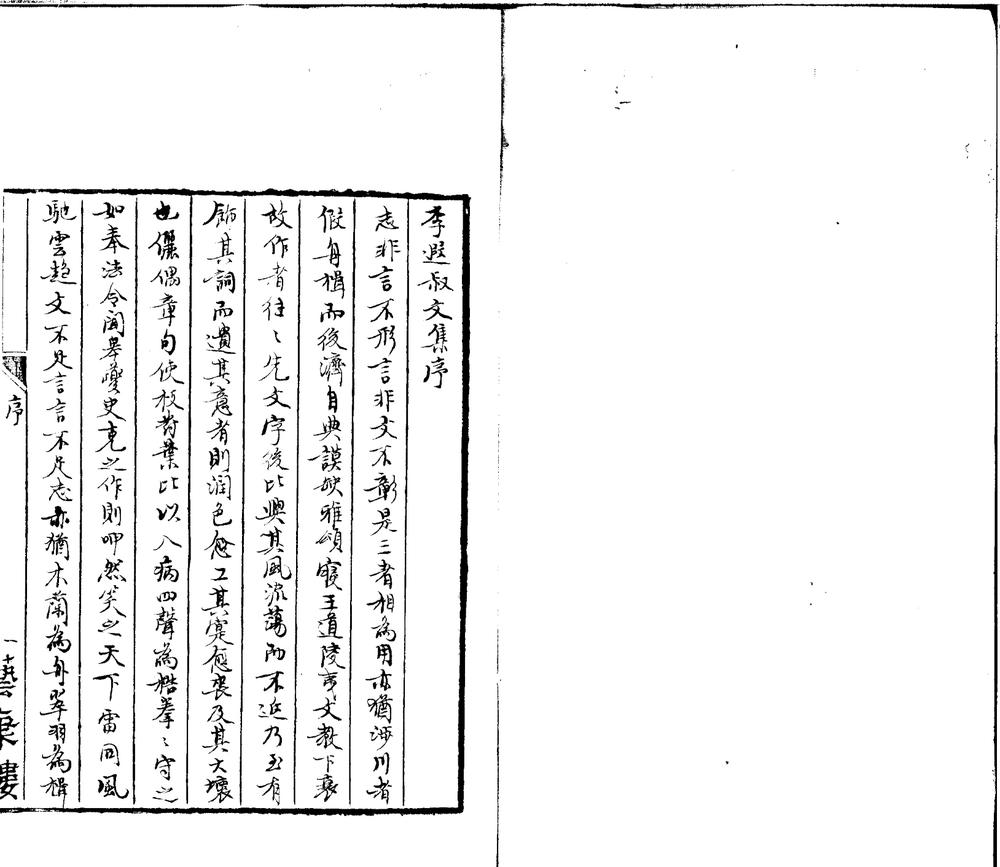 李遐叔文集序
志非言不形言非文不彰是三者相為用亦猶涉川者
假舟楫而後濟自典謨缺雅頌寢王道陵夷文教下衰
故作者往〻先文字後比興其風流蕩而不返乃至有
飾其詞而遺其意者則潤色愈工其寔愈喪及其大壞
也儷偶章句使枝對葉比以八病四聲為梏拲〻守之
如奉法令聞皋夔史克之作則呷然笑之天下雷同風
馳雲趨文不足言言不足志亦猶木蘭為舟翠羽為楫
序
一
藝集樓